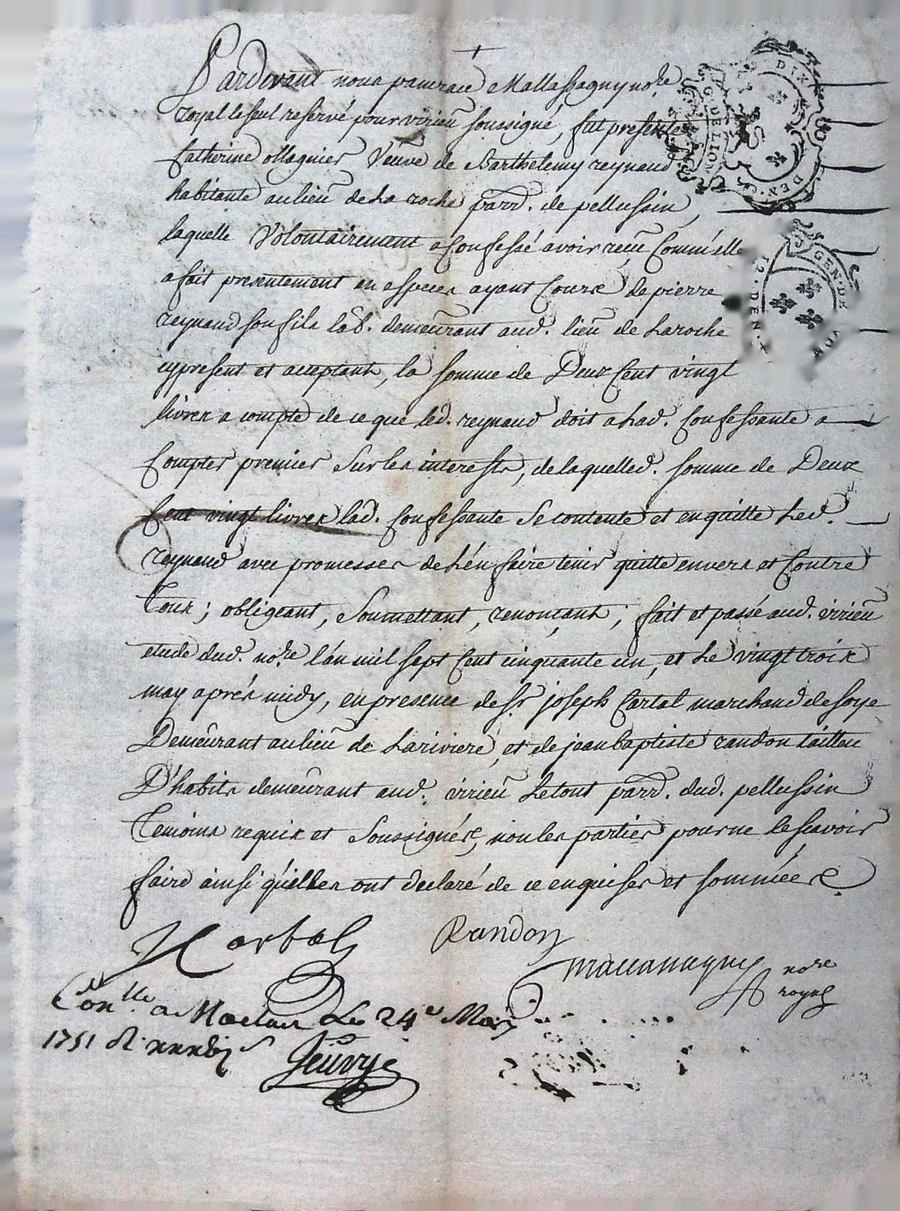 Pardevant nous pancrace Mallassagny no.re
royal le seul reservé pour virieu soussigné, fut presente
Catherine ollagnier veuve de Barthelemy reynaud
habitante au lieu de La roche parr.e de pellussin,
laquelle volontairement a Confessé avoir reçu Comm'elle
a fait presentement en especes ayant Cours de pierre
reynaud son fils lab.r demeurant aud. lieu de Laroche
cy present et acceptant, la somme de Deux Cent vingt
livres a compte de ce que led. reynaud doit a lad. Confessante a
Compter premier sur les interests, de laquelled. somme de Deux
Cent vingt livres lad. Confessante se contente et en quitte led.
reynaud avec promesses de l'en faire tenir quitte envers et Contre
Tous; obligeant, soumettant, renonçant; fait et passé aud. virieu
etude dud. no.re l'an mil sept Cent cinquante un, et Le vingt trois
may aprés midy, en presence de S.r joseph Cartal marchand de soye
Demeurant au lieu de Lariviere, et de jean baptiste randon tailleu
D'habits demeurant aud. virieu Le tout parr.e dud. pellussin
Temoins requis et soussignés, non les parties pour ne le scavoir
faire ainsi qu'elles ont declaré de ce enquises et sommées
Randon
no.re
royal
Con.lle a Maclas Le 24e May
1751
G. DE LION
DIX DEN.
GEN. DE
12. DEN.